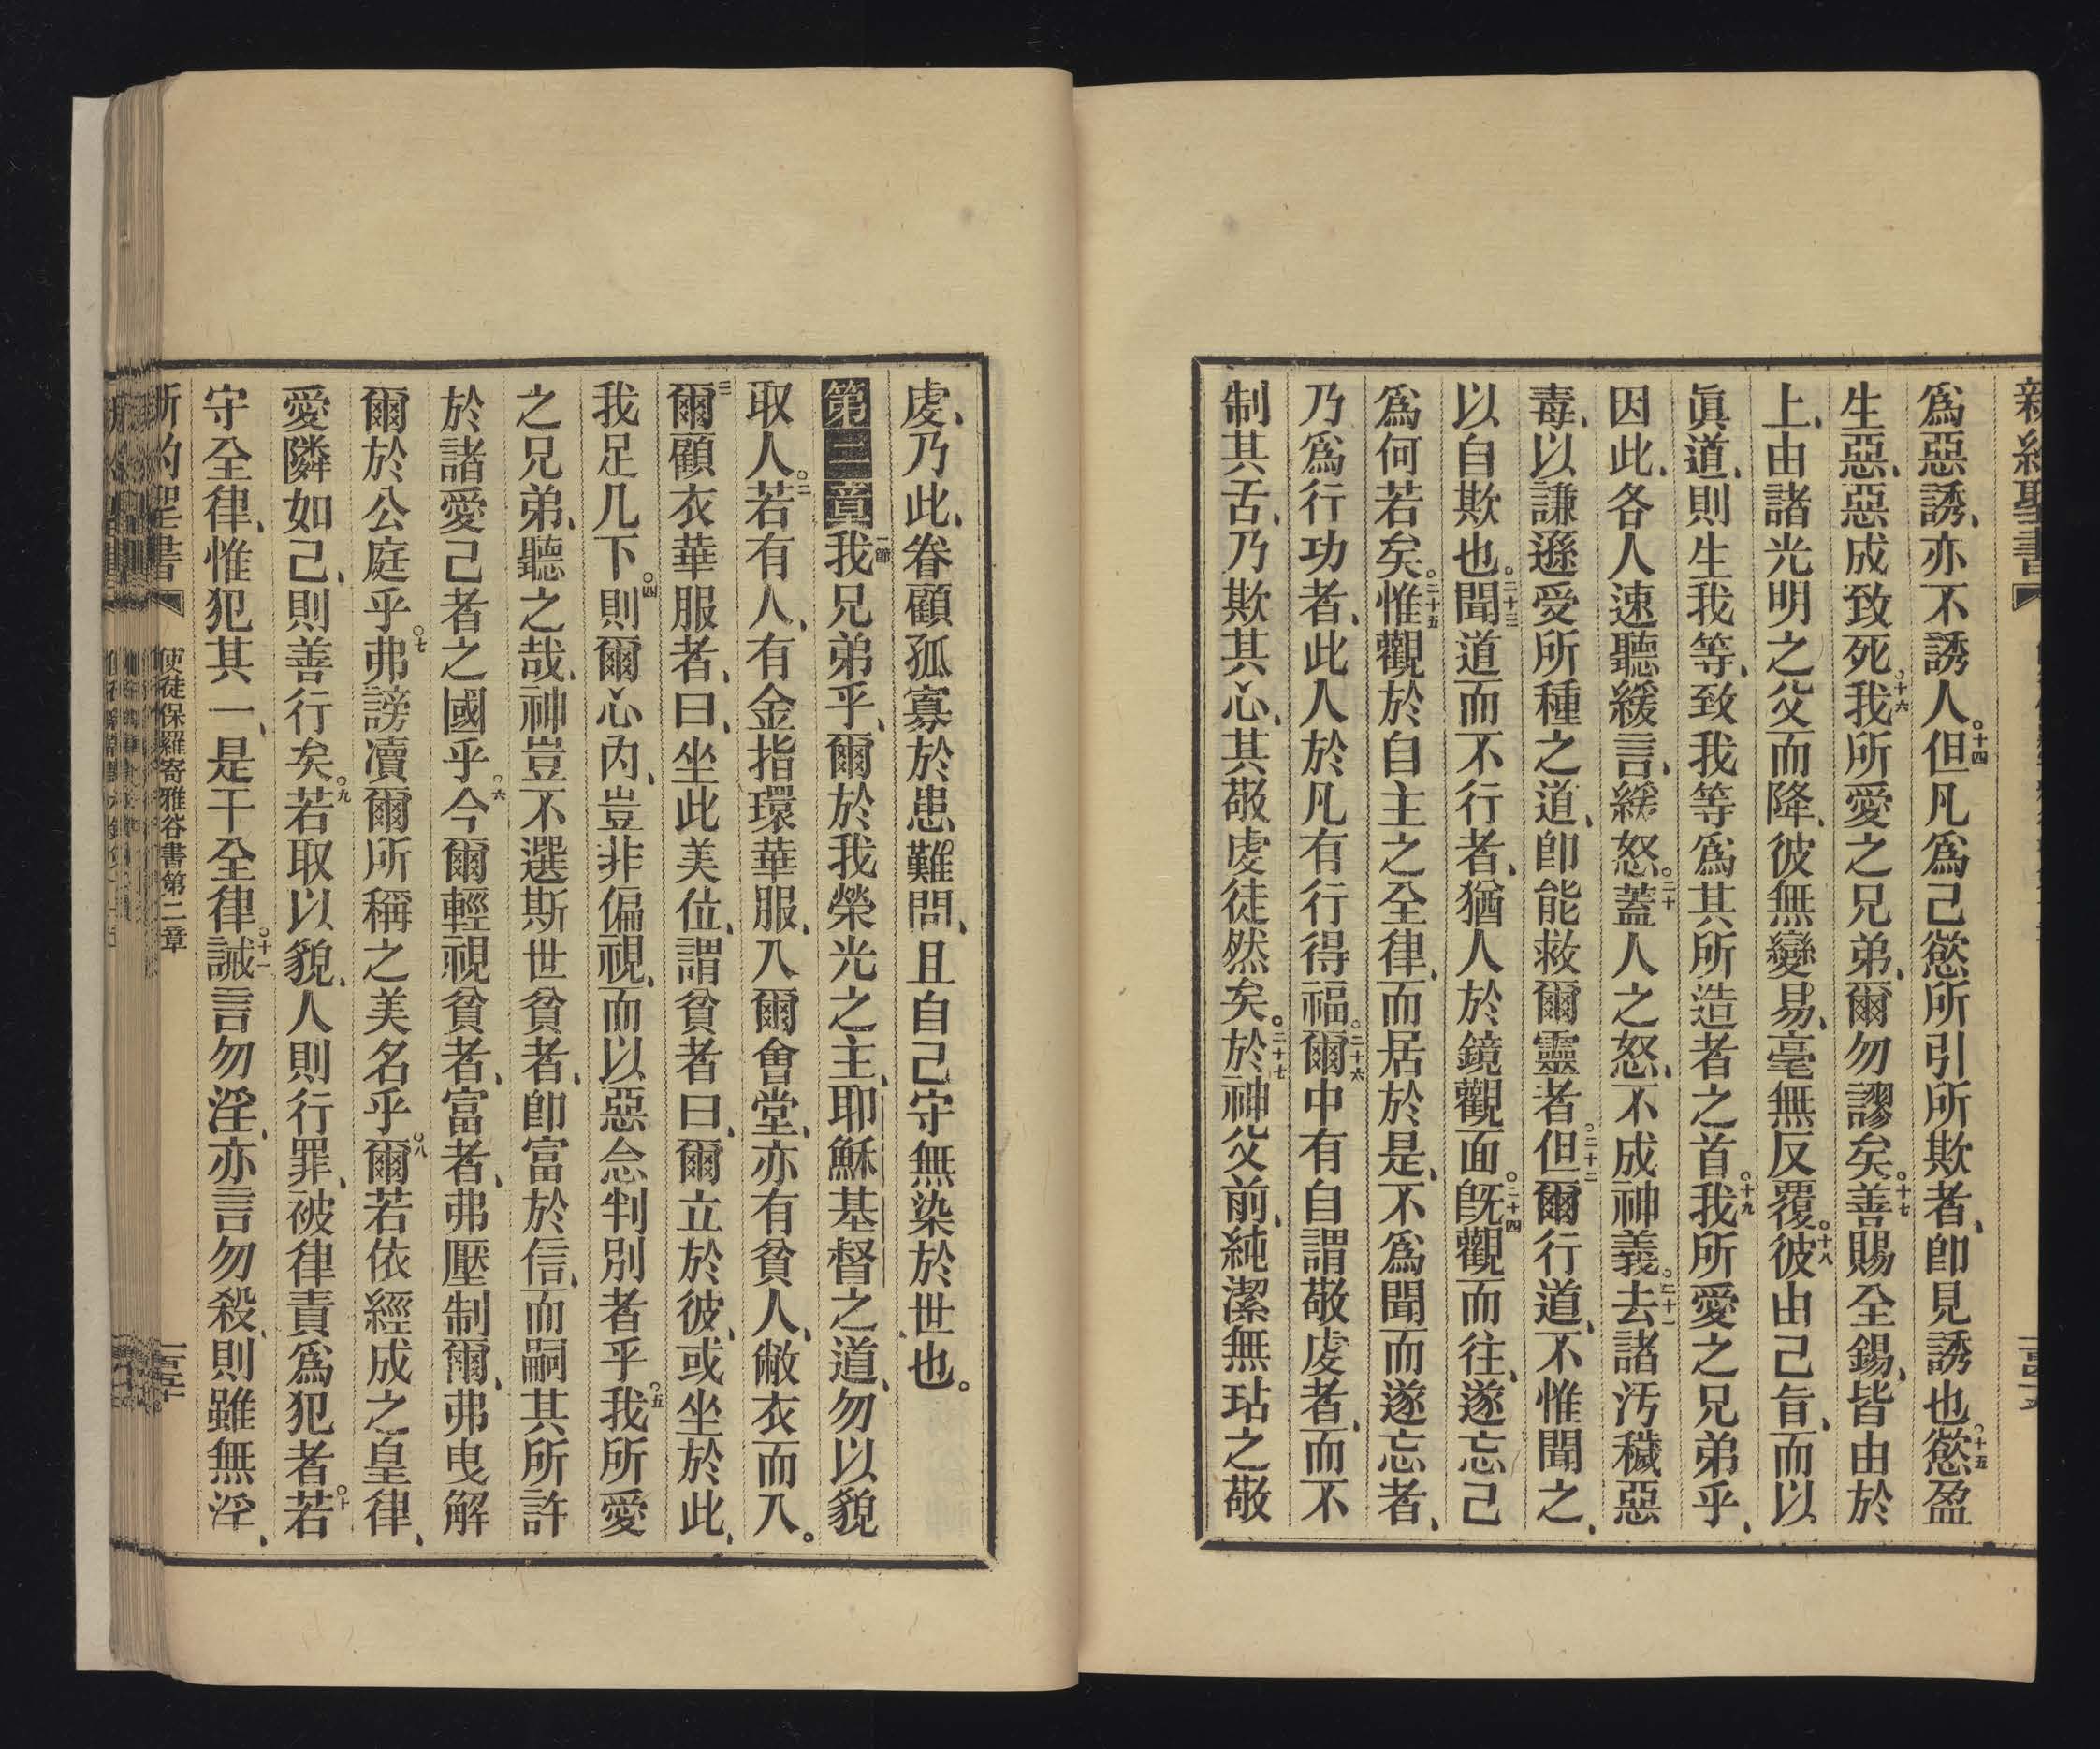 爲惡誘、亦不誘人。十四但凡爲己慾所引所欺者、卽見誘也。十五慾盈
生惡、惡成致死。十六我所愛之兄弟、爾勿謬矣。十七善賜全錫、皆由於
上、由諸光明之父而降、彼無變易、毫無反覆。十八彼由己旨、而以
眞道、則生我等、致我等爲其所造者之首。十九我所愛之兄弟乎、
因此、各人速聽緩言、緩怒。二十蓋人之怒、不成神義。二十一去諸汚穢惡
毒、以謙遜受所種之道、卽能救爾靈者。二十二但爾行道、不惟聞之、
以自欺也。二十三聞道而不行者、猶人於鏡觀面。二十四旣觀而往、遂忘己
爲何若矣。二十五惟觀於自主之全律、而居於是、不爲聞而遂忘者、
乃爲行功者、此人於凡有行得福。二十六爾中有自謂敬虔者、而不
制其舌、乃欺其心、其敬虔徒然矣。二十七於神父前、純潔無玷之敬
虔、乃此、眷顧孤寡於患難問、且自己守無染於世也。
第二章一節我兄弟乎、爾於我榮光之主、耶穌基督之道、勿以貌
取人。二若有人、有金指環華服、入爾會堂、亦有貧人、敝衣而入。
三爾顧衣華服者、曰、坐此美位、謂貧者曰、爾立於彼、或坐於此、
我足几下。四則爾心內、豈非偏視、而以惡念判別者乎。五我所愛
之兄弟、聽之哉、神豈不選斯世貧者、卽富於信、而嗣其所許
於諸愛己者之國乎。六今爾輕視貧者、富者、弗壓制爾、弗曳解
爾於公庭乎。七弗謗瀆爾所稱之美名乎。八爾若依經成之皇律、
愛隣如己、則善行矣。九若取以貌、人則行罪、被律責爲犯者。十若
守全律、惟犯其一、是干全律。十一誡言勿淫、亦言勿殺、則雖無淫、
使徒保羅寄雅谷書第二章